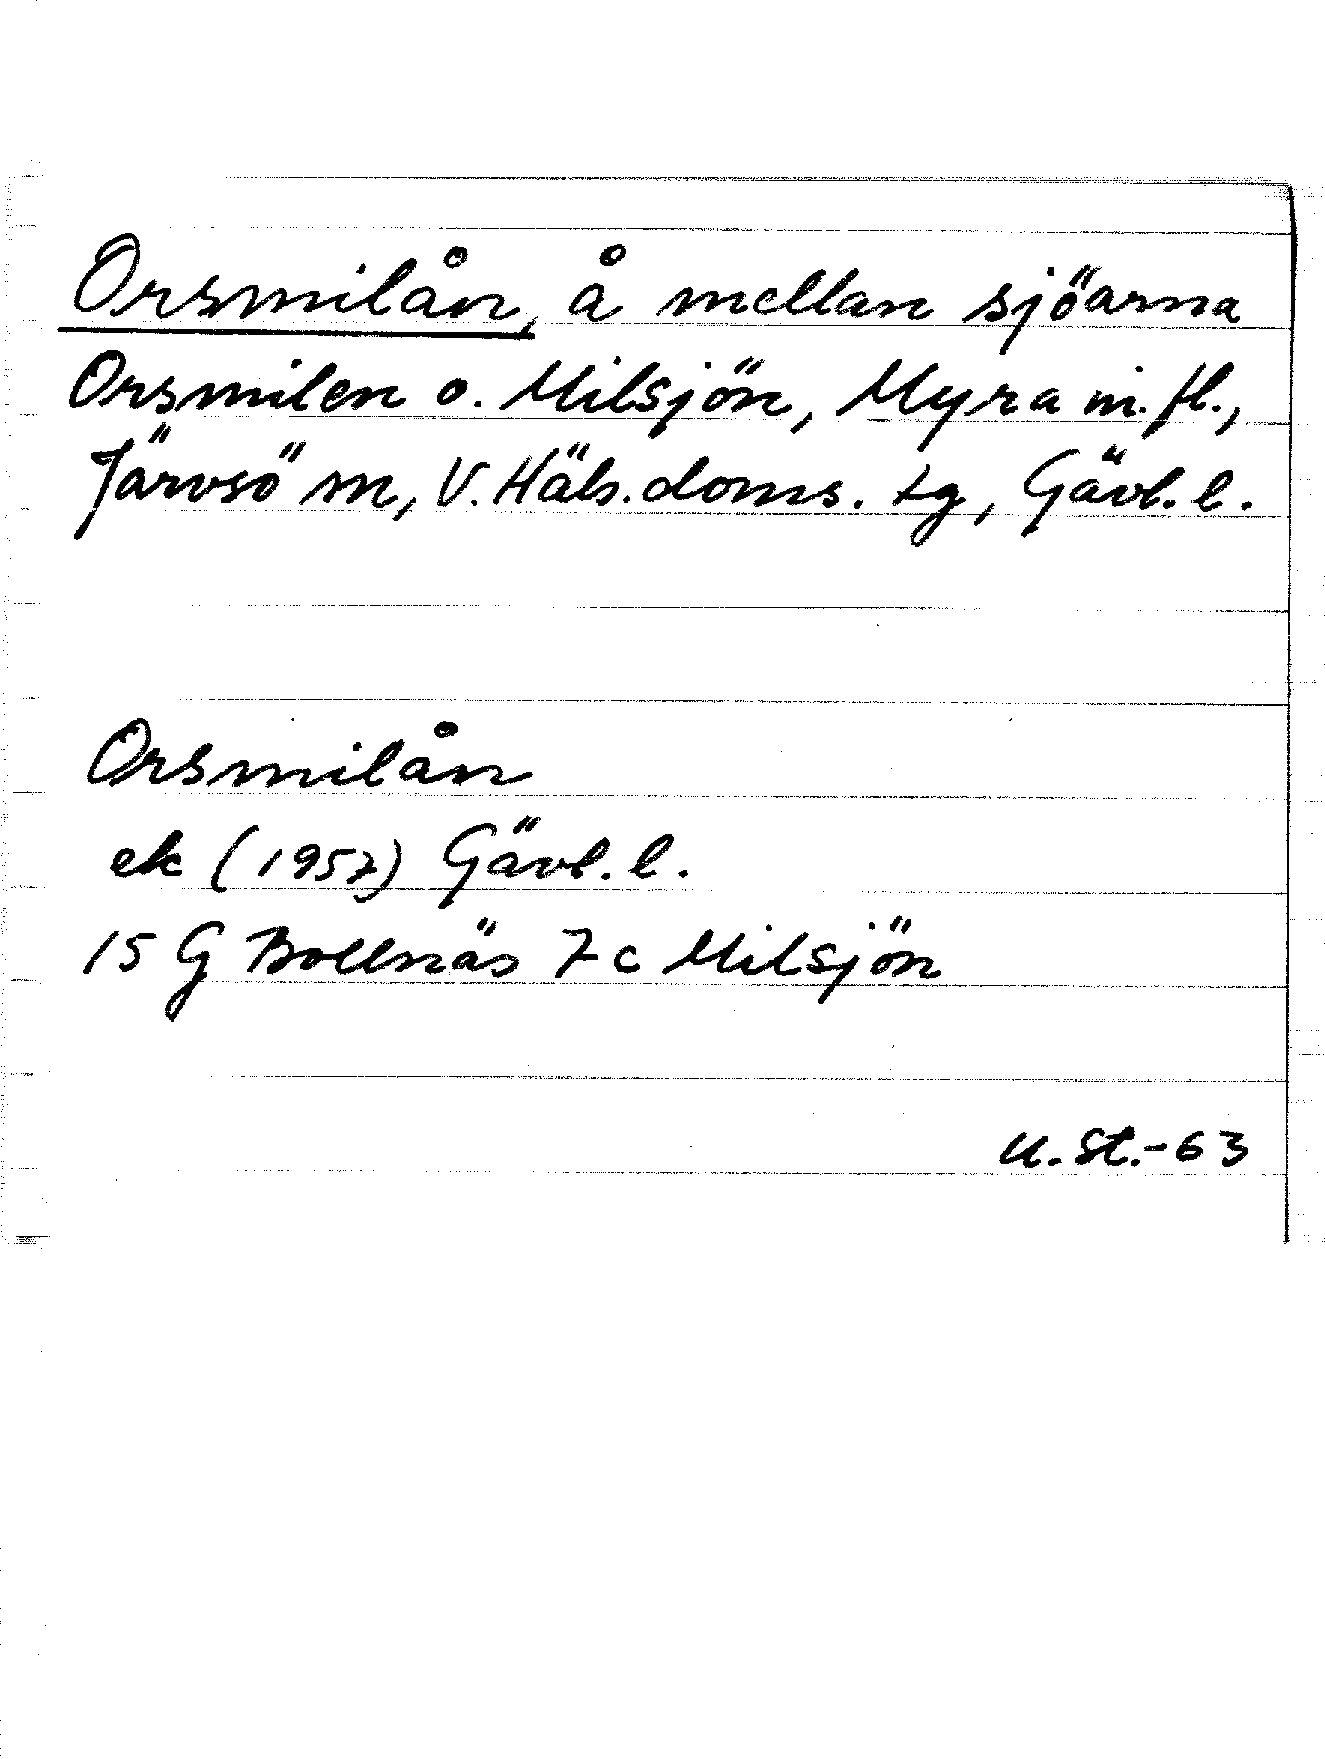 Orsmilån, å mellan sjöarna
Orsmilen o. Milsjön, Myra m.fl.,
Järvsö sn, V. Häls. doms. tg, Gävl. l.
Orsmilån
ek (1957) Gävl. l.
15 G Bollnäs 7c Milsjön
U. St. - 63